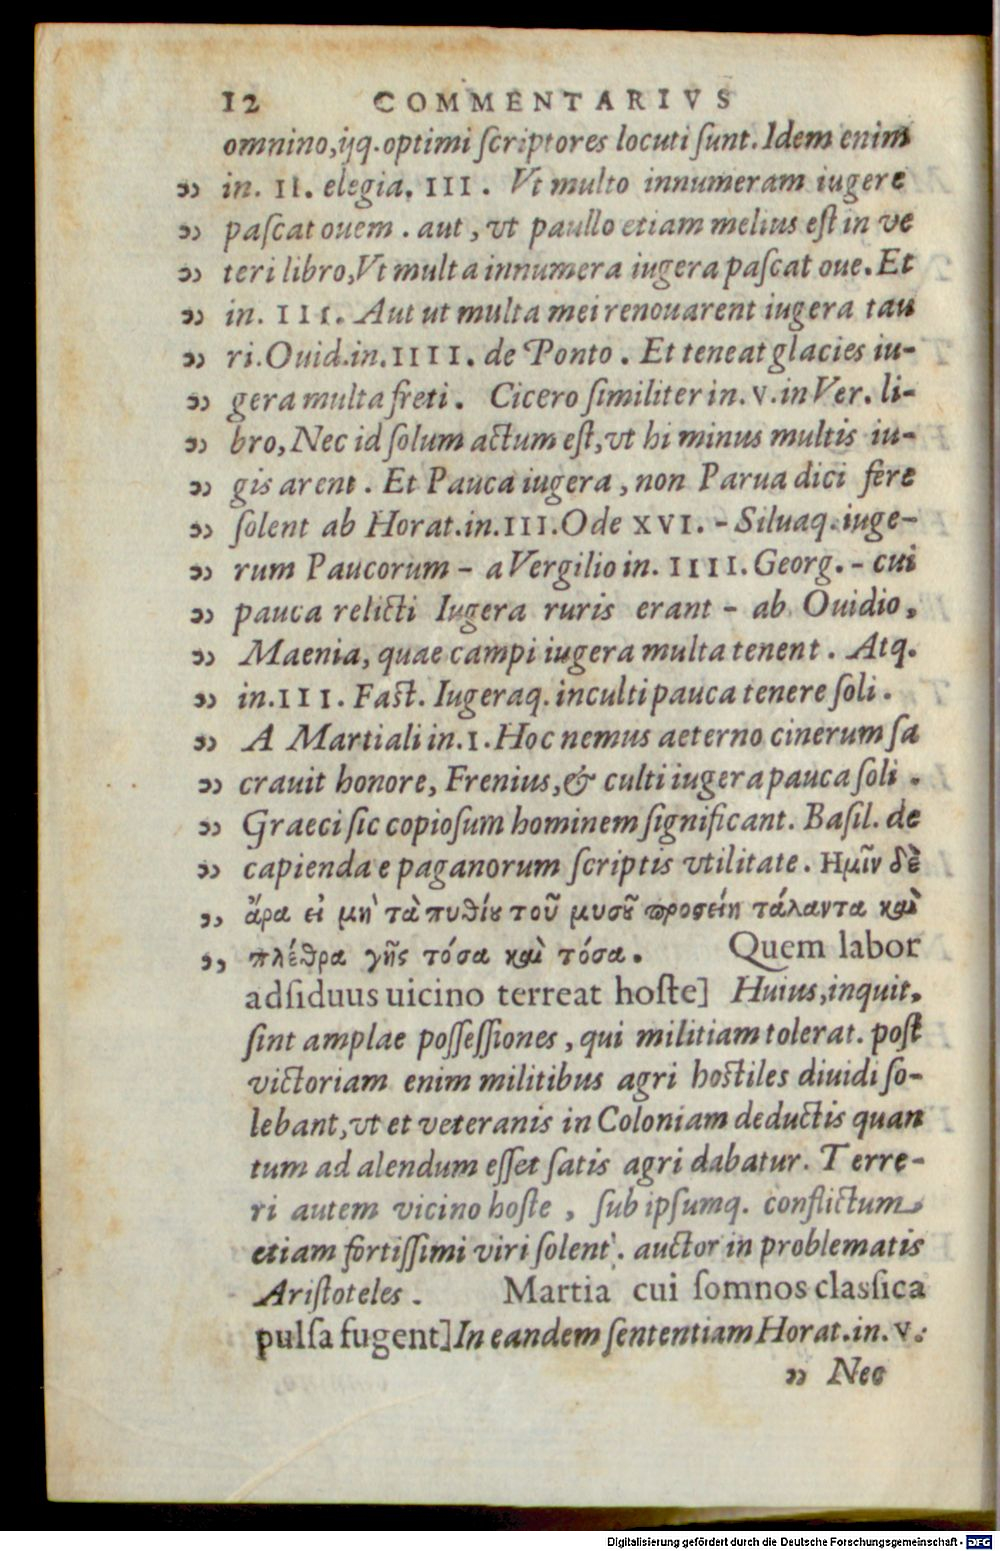 12 COMMENTARIVS
omnino, ijq. optimi ſcriptores locuti ſunt. Idem enim
„ in. II. elegia. III. Vt multo innumeram iugere
„ paſcat ouem. aut, vt paullo etiam melius eſt in ve
„ teri libro, Vt multa innumera iugera paſcat oue. Et
„ in. III. Aut ut multa mei renouarent iugera tau
„ ri. Ouid. in. IIII. de Ponto. Et teneat glacies iu-
„ gera multa freti. Cicero ſimiliter in. V. in Ver. li-
„ bro, Nec id ſolum actum eſt, vt hi minus multis iu-
„ gis arent. Et Pauca iugera, non Parua dici fere
„ ſolent ab Horat. in. III. Ode XVI. - Siluaq. iuge-
„ rum Paucorum - a Vergilio in. IIII. Georg. - cui
„ pauca relicti Iugera ruris erant - ab Ouidio,
„ Maenia, quae campi iugera multa tenent. Atq.
„ in. III. Faſt. Iugeraq. inculti pauca tenere ſoli.
„ A Martiali in. I. Hoc nemus aeterno cinerum ſa
„ crauit honore, Frenius, & culti iugera pauca ſoli.
„ Graeci ſic copioſum hominem ſignificant. Baſil. de
„ capienda e paganorum ſcriptis vtilitate. Ημῖν δὲ
„ ἄρα εἰ μὴ τὰ πυθίου τοῦ μυσοῦ προσείη τάλαντα καὶ
„ πλέθρα γῆς τόσα καὶ τόσα. Quem labor
adſiduus uicino terreat hoſte] Huius, inquit,
ſint amplae poſſeſſiones, qui militiam tolerat. poſt
victoriam enim militibus agri hoſtiles diuidi ſo-
lebant, vt et veteranis in Coloniam deductis quan
tum ad alendum eſſet ſatis agri dabatur. Terre-
ri autem vicino hoſte, ſub ipſumq. conflictum
etiam fortiſſimi viri ſolent. auctor in problematis
Ariſtoteles. Martia cui ſomnos claſsica
pulſa fugent] In eandem ſententiam Horat. in. V.
„ Nec
Digitalisierung gefördert durch die Deutsche Forschungsgemeinschaft - DFG